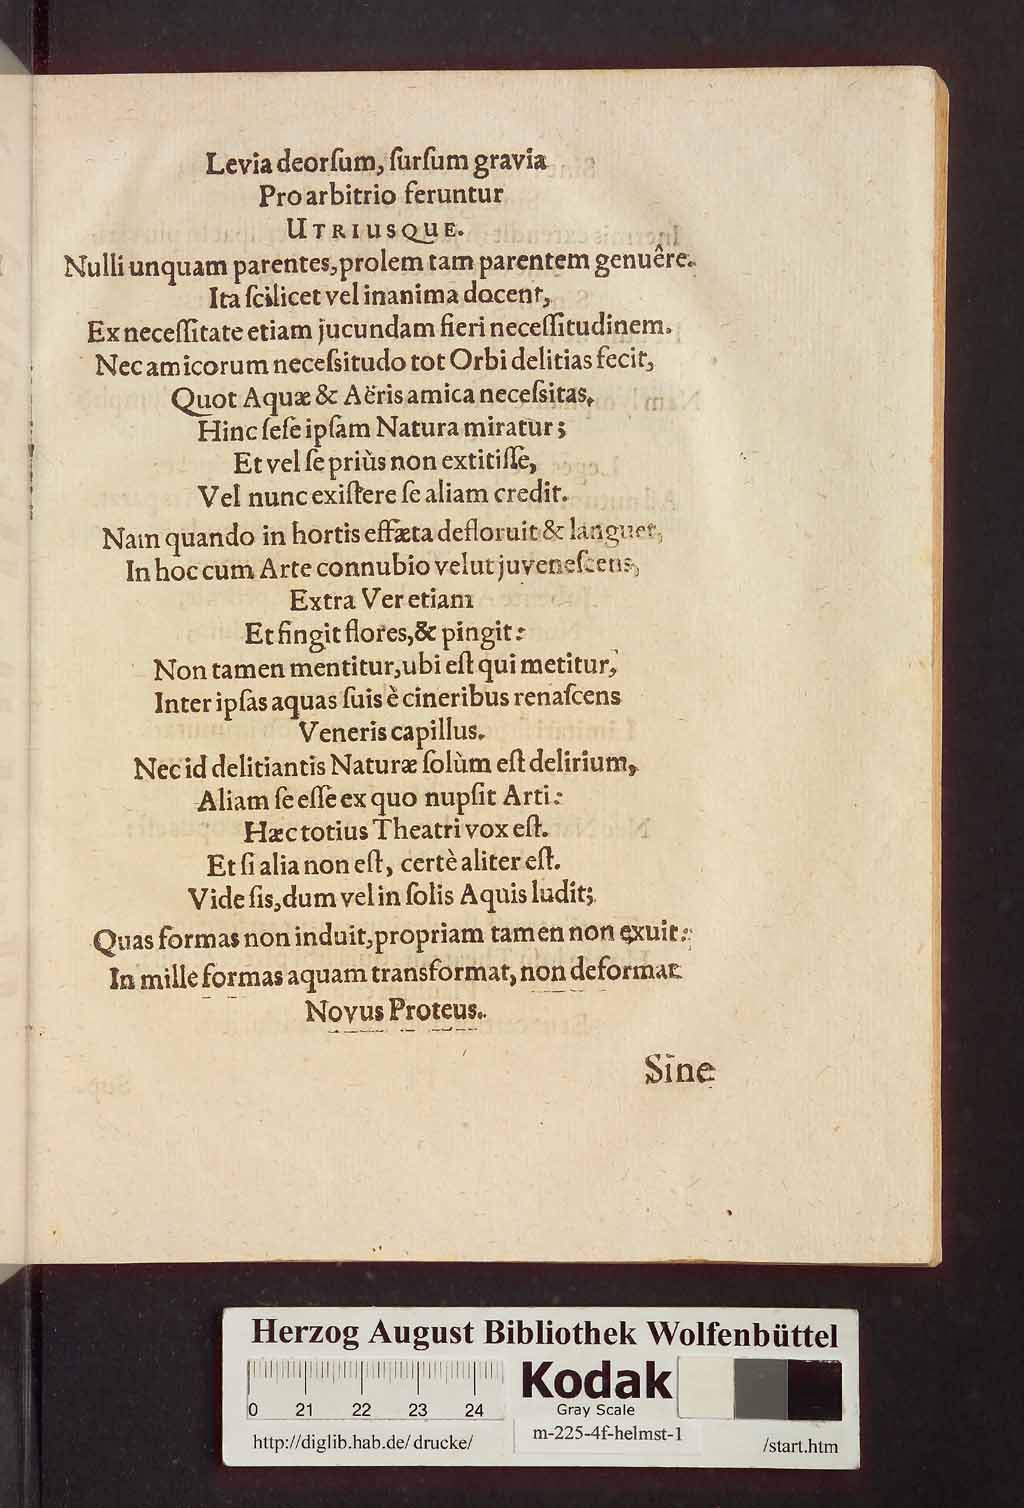 Levia deorſum, ſurſum gravia
Pro arbitrio feruntur
UTRIUSQUE.
Nulli unquam parentes, prolem tam parentem genuêre.
Ita ſcilicet vel inanima docent,
Ex neceſſitate etiam jucundam fieri neceſſitudinem.
Nec amicorum neceſsitudo tot Orbi delitias fecit,
Quot Aquæ & Aëris amica neceſsitas,
Hinc ſeſe ipſam Natura miratur;
Et vel ſe priùs non extitiſſe,
Vel nunc exiſtere ſe aliam credit.
Nam quando in hortis effæta defloruit & languet,
In hoc cum Arte connubio velut juveneſcens,
Extra Ver etiam
Et fingit flores, & pingit:
Non tamen mentitur, ubi eſt qui metitur,
Inter ipſas aquas ſuis è cineribus renaſcens
Veneris capillus.
Nec id delitiantis Naturæ ſolùm eſt delirium,
Aliam ſe eſſe ex quo nupſit Arti:
Hæc totius Theatri vox eſt.
Et ſi alia non eſt, certè aliter eſt.
Vide ſis, dum vel in ſolis Aquis ludit;
Quas formas non induit, propriam tamen non exuit:
In mille formas aquam transformat, non deformat
Novus Proteus.
Sine
Herzog August Bibliothek Wolfenbüttel
0 21 22 23 24
Kodak
Gray Scale
m-225-4f-helmst-1
http://diglib.hab.de/drucke/
/start.htm